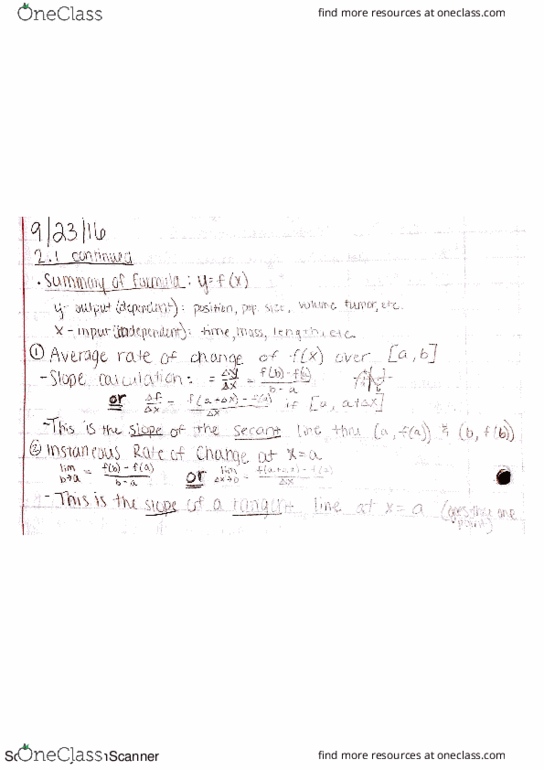 OneClass
find more resources at oneclass.com
9/23/16
2.1 continued
• Summary of formula: y = f(x)
y - output (dependent): position, pop. size, volume tumor, etc.
x - input (independent): time, mass, length, etc
① Average rate of change of f(x) over [a, b]
- Slope calculation: = Δy/Δx = f(b) - f(a)/b - a
or Δf/Δx = f(a+Δx) - f(a)/Δx if [a, a+Δx]
- This is the slope of the secant line thru (a, f(a)) & (b, f(b))
② Instaneous Rate of Change at x = a
lim b→a = f(b) - f(a)/b - a or lim Δx→0 = f(a+Δx) - f(a)/Δx
- This is the slope of a tangent line at x = a (goes thru one point)
OneClass
Scanner
find more resources at oneclass.com